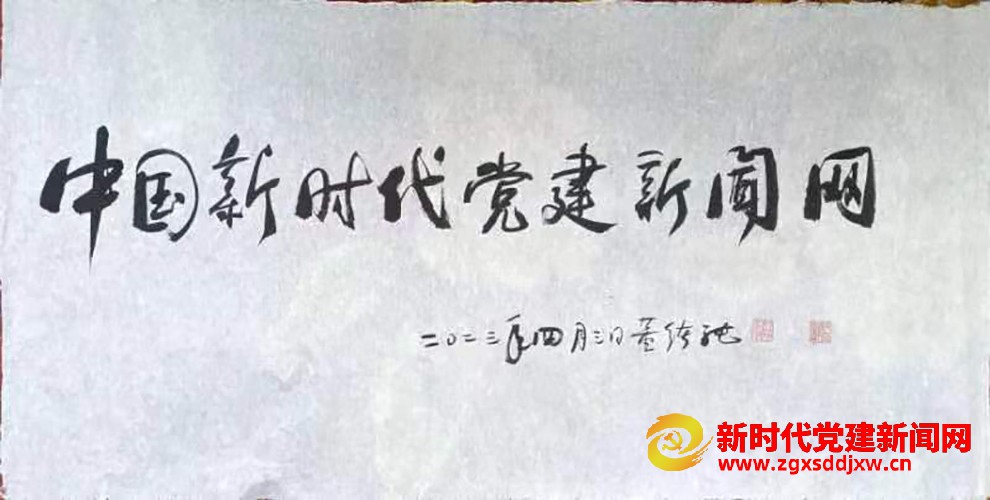 中国新时代党建新闻网
二〇二三年四月三日董
新时代党建新闻网
www.zgxsddjxw.cn